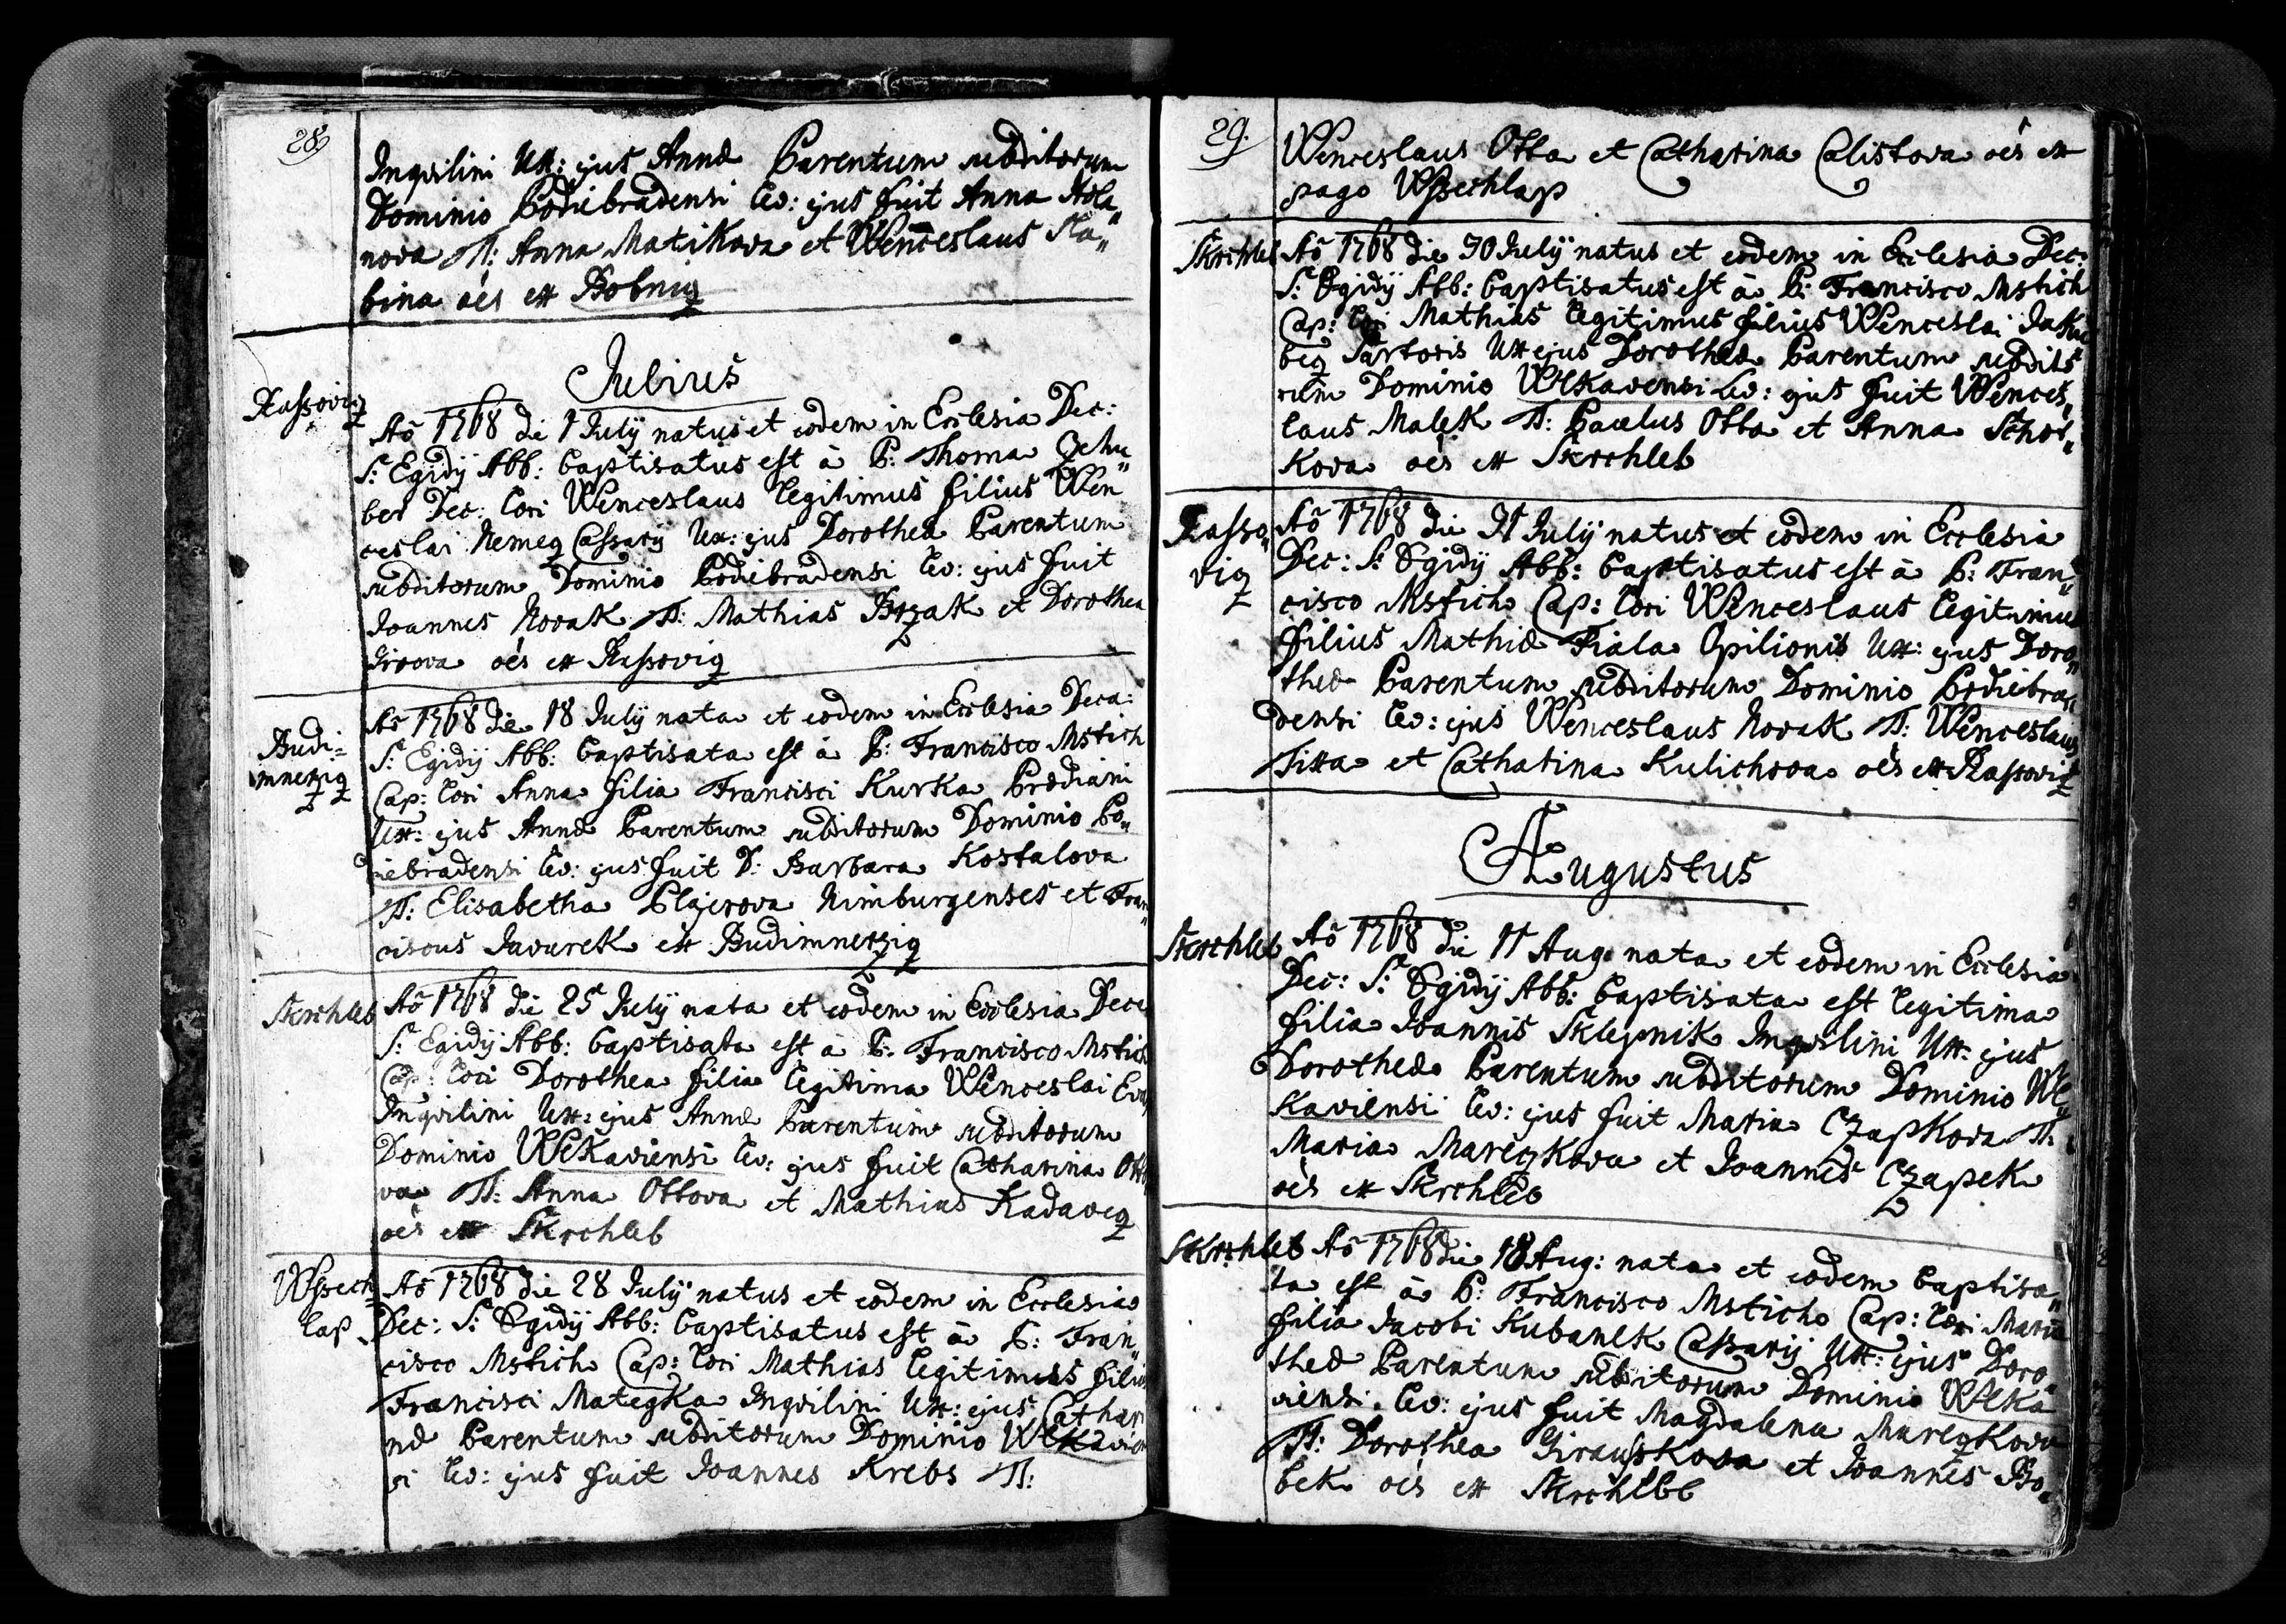 28
Inqvilini Ux: ejus Annæ Parentum subditorum
Dominio Podiebradensi Lev: ejus fuit Anna Hola„
nova TT: Anna Matikova et Wenceslaus Sla„
bina oēs ex Bobnicz
Julius
Rassovicz
Aō 1768 die 1 Julij natus et eodem in Ecclesia Dec:
S: Egidij Abb: baptisatus est à P: Thoma Gehu„
ber Dec: loci Wenceslaus legitimus filius Wen
ceslai Nemecz Cassarij Ux: ejus Dorotheæ Parentum
subditorum Dominio Podiebradensi Lev: ejus fuit
Joannes Novak TT: Mathias Brzak et Dorothea
Jirova oēs ex Rassovicz
Budi=
mnerzicz
Aō 1768 die 18 Julij nata et eodem in Ecclesia Deca:
S: Egidij Abb: baptisata est à P: Francisco Mstich
Cap: loci Anna filia Francisci Kurka Prædiani
Ux: ejus Annæ Parentum subditorum Dominio Po„
diebradensi Lev: ejus fuit D: Barbara Kostalova
TT: Elisabetha Plajerova Nimburgenses et Fran„
ciscus Javurek ex Budimnerzicz
Skrchleb
Aō 1768 die 25 Julij nata et eodem in Ecclesia Dec:
S: Egidij Abb: baptisata est à P: Francisco Mstich
Cap: loci Dorothea filia legitima Wenceslai
Inqvilini Ux: ejus Annæ Parentum subditorum
Dominio Wlkaviensi Lev: ejus fuit Catharina Otto
va TT: Anna Ottova et Mathias Kadavecz
oēs ex Skrchleb
Wssech=
lap
Aō 1768 die 28 Julij natus et eodem in Ecclesia
Dec: S: Egidij Abb: baptisatus est à P: Fran„
cisco Mstich Cap: loci Mathias legitimus filius
Francisci Mategka Inqvilini Ux: ejus Cathari
næ Parentum subditorum Dominio Wlkavien
si Lev: ejus fuit Joannes Krebs TT:
29.
Wenceslaus Otta et Catharina Calistova oēs ex
pago Wssechlap
Skrchleb
Aō 1768 die 30 Julij natus et eodem in Ecclesia Dec:
S: Egidij Abb: baptisatus est à P: Francisco Mstich
Cap: loci Mathias legitimus filius Wenceslai
Sartoris Ux ejus Dorotheæ Parentum subdito
rum Dominio Wlkavensi Lev: ejus fuit Wences„
laus Malek TT: Paulus Otta et Anna
kova oēs ex Skrchleb
Rasso„
vicz
Aō 1768 die 31 Julij natus et eodem in Ecclesia
Dec: S: Egidij Abb: baptisatus est à P: Fran„
cisco Mstich Cap: loci Wenceslaus legitimus
filius Mathiæ Fiala Opilionis Ux: ejus Doro„
theæ Parentum subditorum Dominio Podiebra„
densi Lev: ejus Wenceslaus Novak TT: Wenceslaus
Tixa et Catharina Kulichova oēs ex Rassovicz
Augustus
Skrchleb
Aō 1768 die 11 Aug: nata et eodem in Ecclesia
Dec: S: Egidij Abb: baptisata est legitima
filia Joannis Sklepnik Inqvilini Ux: ejus
Dorotheæ Parentum subditorum Dominio Wl„
kaviensi Lev: ejus fuit Maria Czapkova TT:
Maria Mareczkova et Joannes Czapek
oēs ex Skrchleb
Skrchleb
Aō 1768 die 18 Aug: nata et eodem baptisa„
ta est à P: Francisco Mstich Cap: loci Maria
filia Jacobi Kubanek Cassarij Ux: ejus Doro„
theæ Parentum subditorum Dominio Wlka
viensi. Lev: ejus fuit Magdalena Mareczkova
TT: Dorothea Girauskova et Joannes Bo„
bek oēs ex Skrchleb